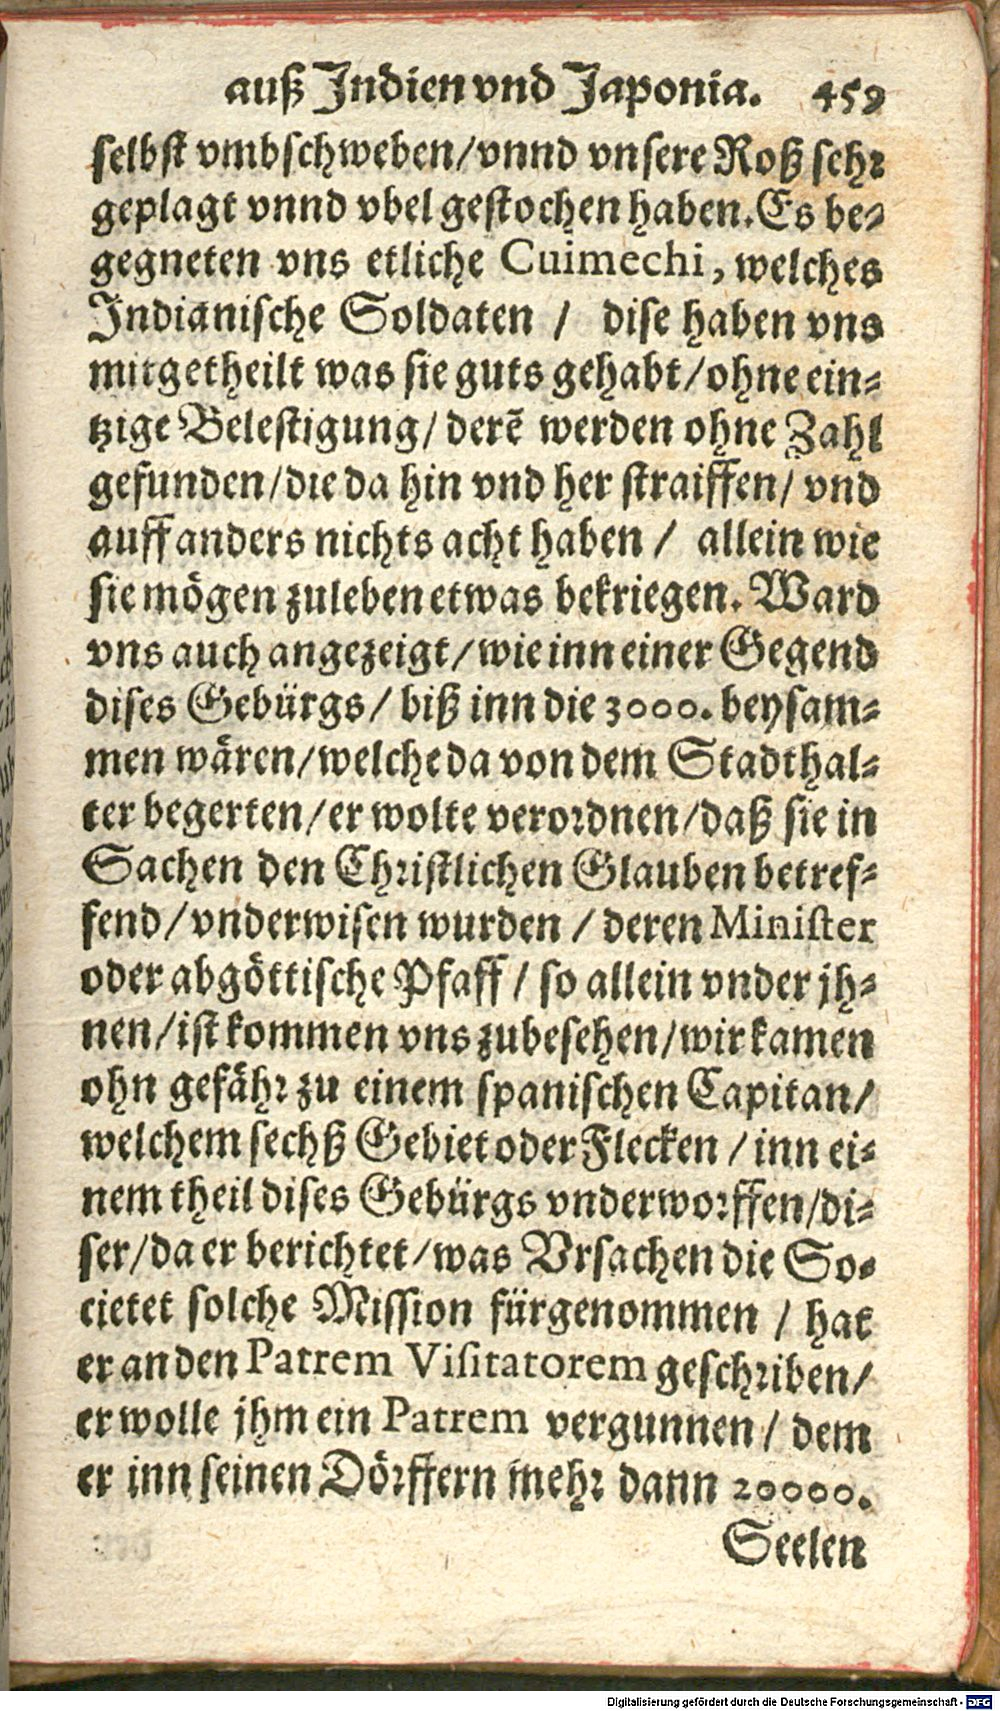 auß Indien vnd Japonia. 459
selbst vmbschweben/vnnd vnsere Roß sehr
geplagt vnnd vbel gestochen haben. Es be-
gegneten vns etliche Cuimechi, welches
Indianische Soldaten / dise haben vns
mitgetheilt was sie guts gehabt/ohne ein-
tzige Belestigung/ derē werden ohne Zahl
gefunden/die da hin vnd her straiffen/ vnd
auff anders nichts acht haben / allein wie
sie mögen zuleben etwas bekriegen. Ward
vns auch angezeigt/wie inn einer Gegend
dises Gebürgs/ biß inn die 3000. beysam-
men wären/welche da von dem Stadthal-
ter begerten/er wolte verordnen/daß sie in
Sachen den Christlichen Glauben betref-
fend/vnderwisen wurden / deren Minister
oder abgöttische Pfaff/ so allein vnder jh-
nen/ist kommen vns zubesehen/wir kamen
ohn gefähr zu einem spanischen Capitan/
welchem sechß Gebiet oder Flecken / inn ei-
nem theil dises Gebürgs vnderworffen/di-
ser/da er berichtet/was Vrsachen die So-
cietet solche Mission fürgenommen / hat
er an den Patrem Visitatorem geschriben/
er wolle jhm ein Patrem vergunnen/ dem
er inn seinen Dörffern mehr dann 20000.
Seelen
Digitalisierung gefördert durch die Deutsche Forschungsgemeinschaft - DFG